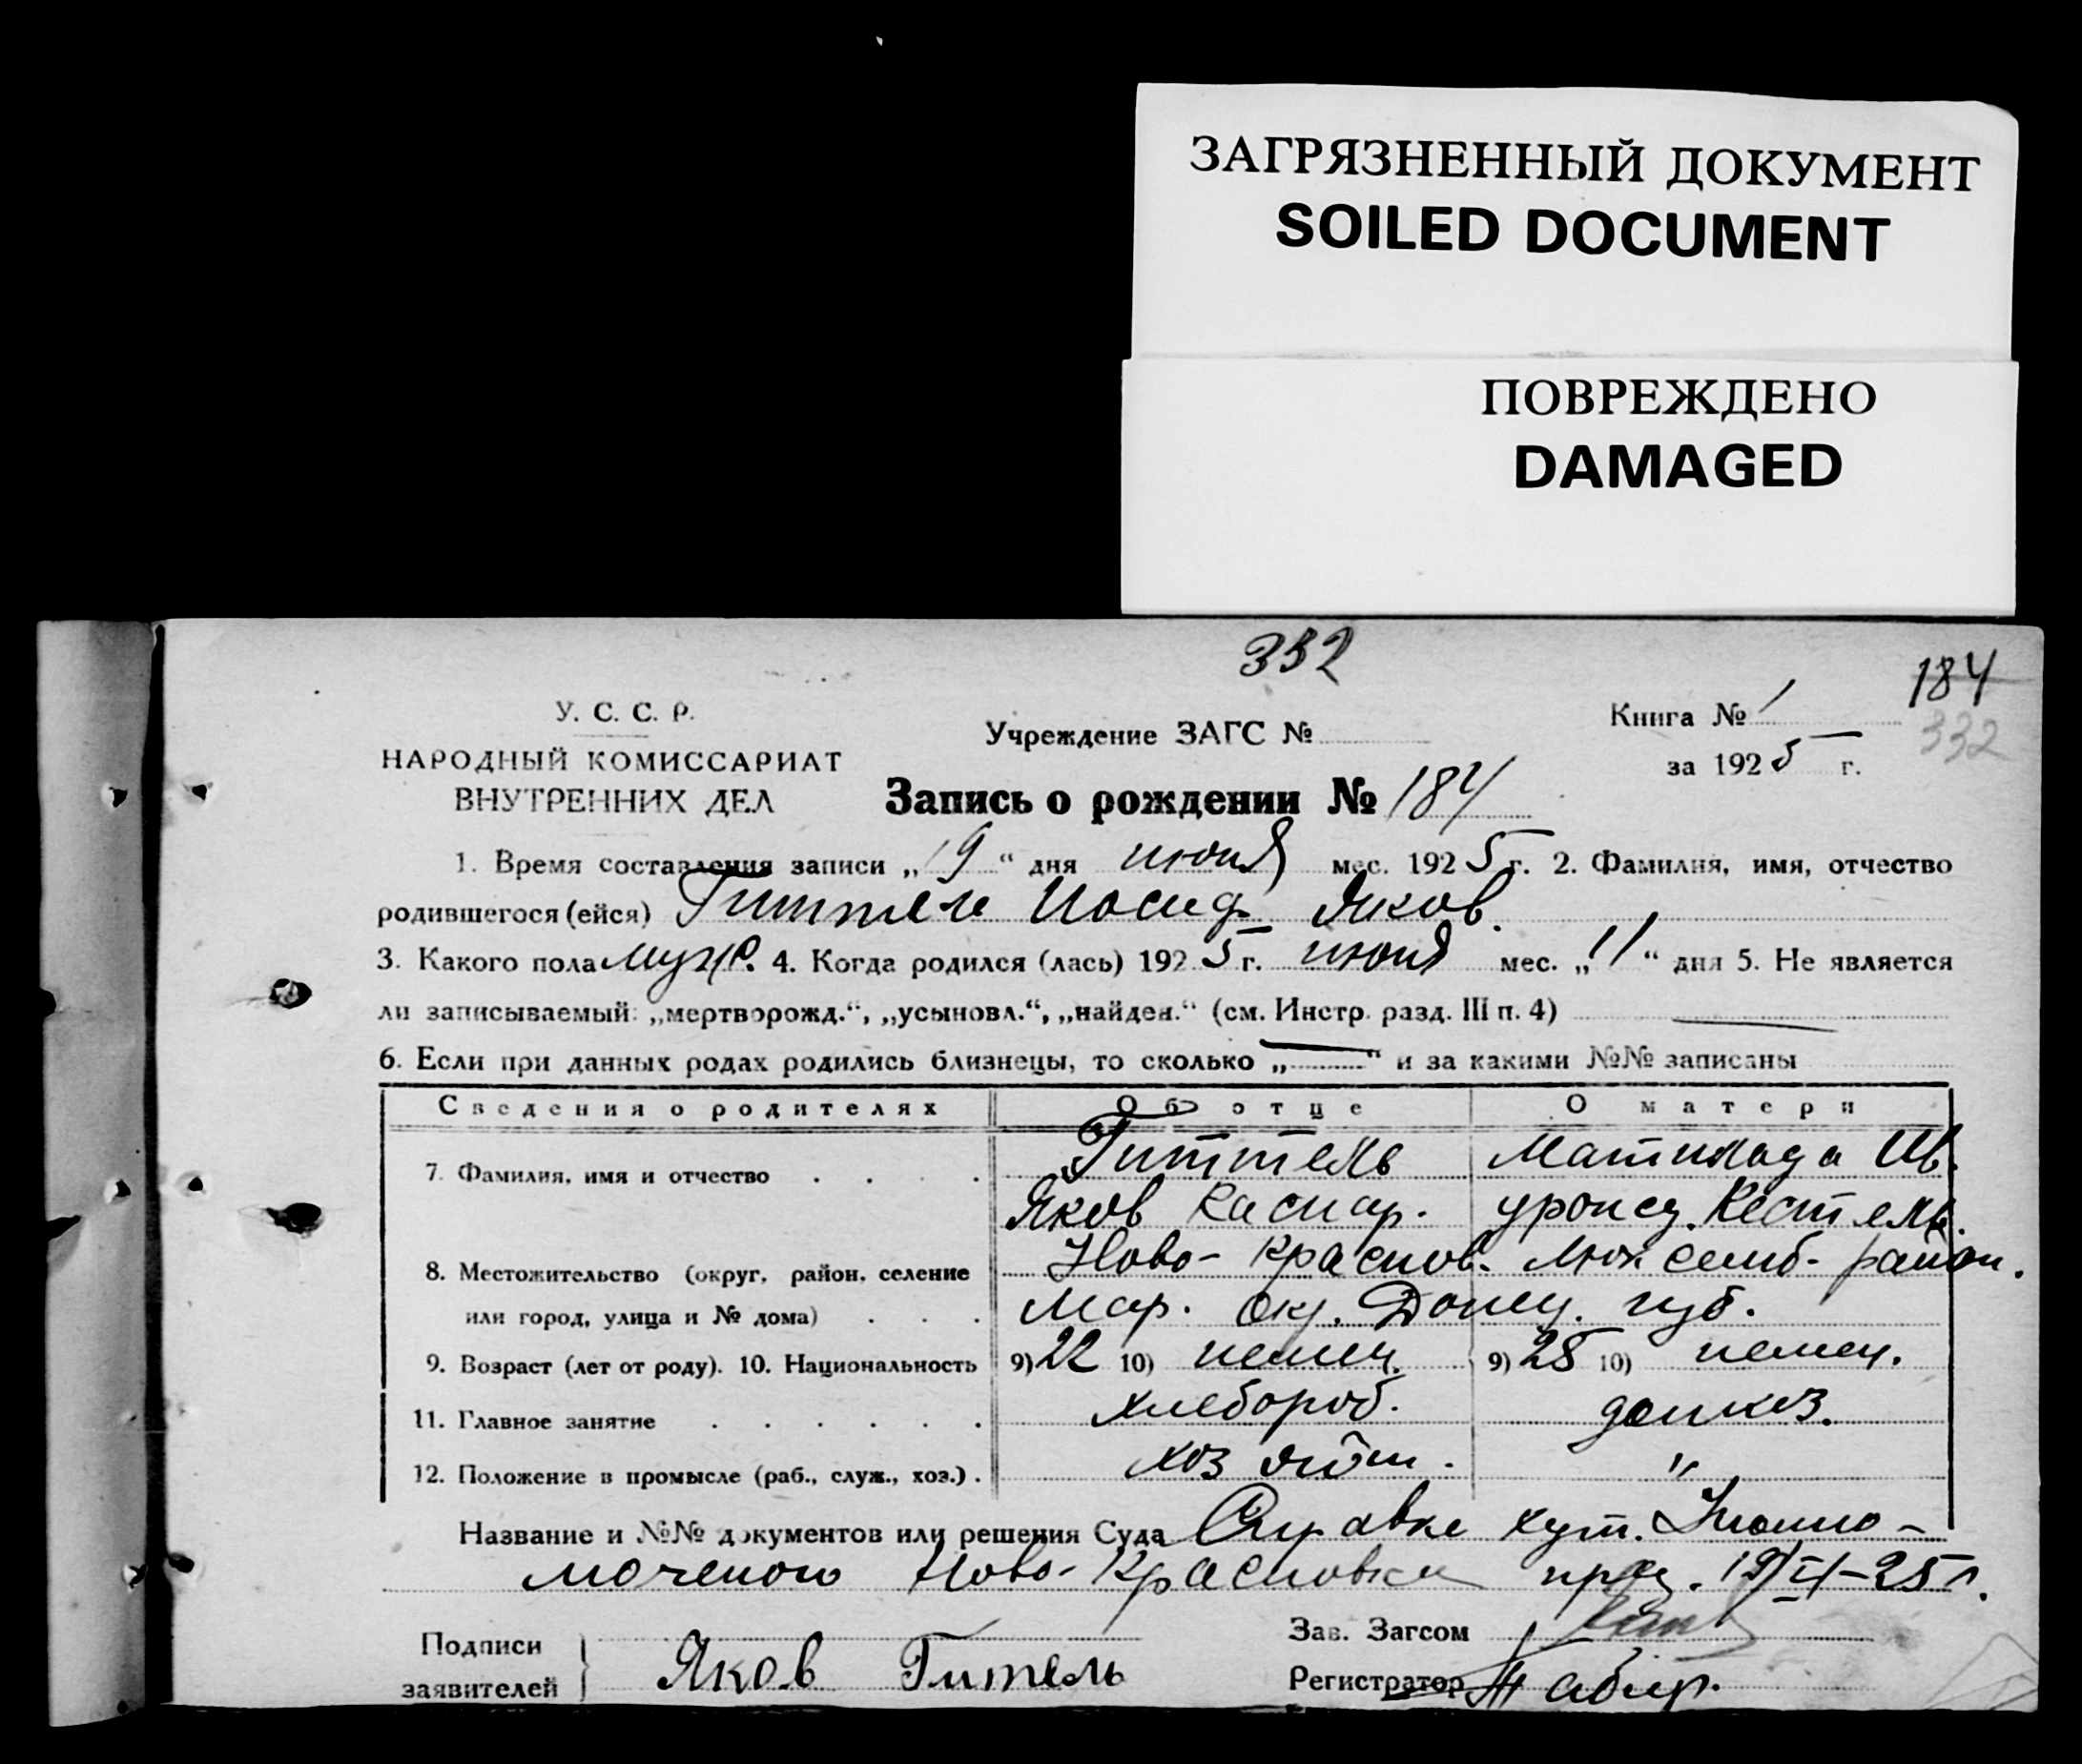 ЗАГРЯЗНЕННЫЙ ДОКУМЕНТ
SOILED DOCUMENT
ПОВРЕЖДЕНО
DAMAGED
332
184
332
У. С. С. Р.
НАРОДНЫЙ КОМИССАРИАТ
ВНУТРЕННИХ ДЕЛ
Учреждение ЗАГС №
Книга № 1
за 1925 г.
Запись о рождении № 184
1. Время составления записи „19“ дня июня мес. 1925 г. 2. Фамилия, имя, отчество
родившегося (ейся) Гиттель Иосиф Яков.
3. Какого пола муж. 4. Когда родился (лась) 1925 г. июня мес. „11“ дня 5. Не является
ли записываемый: „мертворожд.“, „усыновл.“, „найден.“ (см. Инстр. разд. III п. 4) —
6. Если при данных родах родились близнецы, то сколько „—“ и за какими №№ записаны
Сведения о родителях Об отце О матери
7. Фамилия, имя и отчество Гиттель Матильда Ив.
Яков Каспар. урожд. Кестель.
8. Местожительство (округ, район, селение Ново-Краснов. Люксемб. район.
или город, улица и № дома) Мар. окр. Донец. губ.
9. Возраст (лет от роду). 10. Национальность 9) 22 10) немец. 9) 25 10) немец.
11. Главное занятие хлебороб. домхоз.
12. Положение в промысле (раб., служ., хоз.) хоз "
Название и №№ документов или решения Суда Справке хут. Уполно-
моченого Ново-Красновка 19/VI-25 г.
Подписи
заявителей Яков Гитель
Зав. Загсом
Регистратор